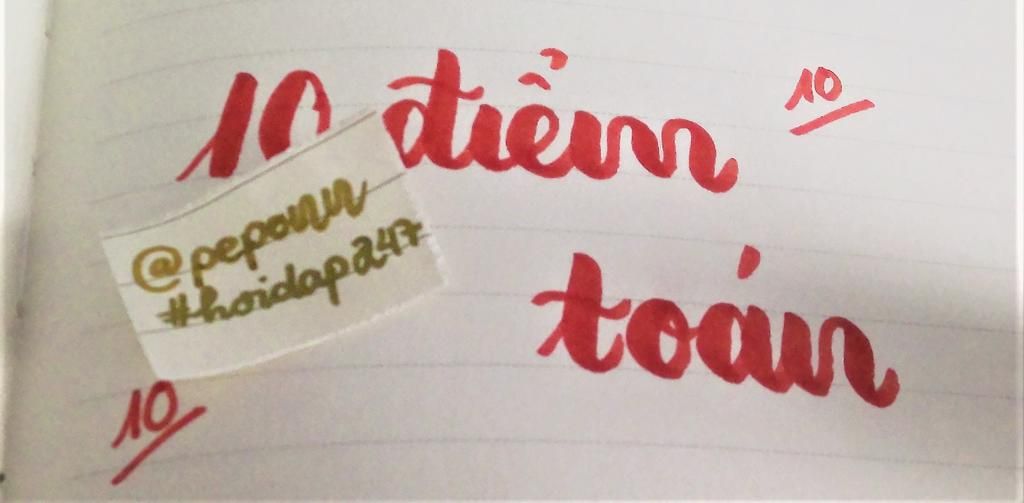 10 điểm
10
@peponn
#hoidap247
toán
10